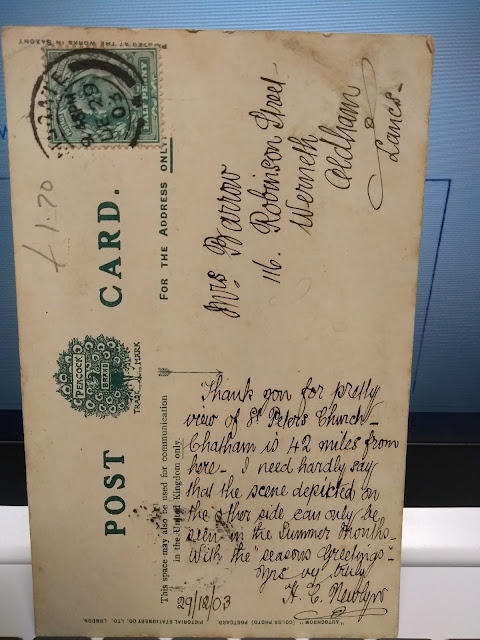 POST CARD.
PEACOCK
BRAND
TRADE MARK
FOR THE ADDRESS ONLY
This space may also be used for communication
in the United Kingdom only.
£1.70
DE 29
03
Mrs Barrow
116. Robinson Street
Werneth
Oldham
Lancs-
Thank you for pretty
view of St Peters Church -
Chatham is 42 miles from
here - I need hardly say
that the scene depicted on
the other side can only be
seen in the Summer Months -
With the "seasons Greetings" -
Yrs vy truly
H. C. Newlyn
29/12/03
"AUTOCHROM" (COLOR PHOTO) POSTCARD. PICTORIAL STATIONERY CO., LTD., LONDON.
AT THE WORKS IN SAXONY